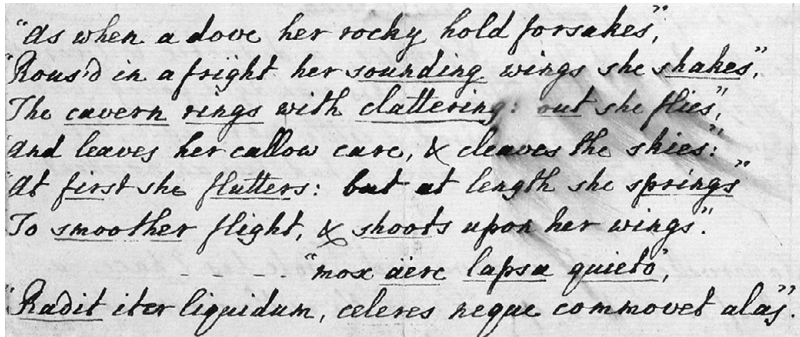 "As when a dove her rocky hold forsakes",
"Rous'd in a fright her sounding wings she shakes",
The cavern rings with clattering: out she flies",
"And leaves her callow care, & cleaves the skies:"
"At first she flutters: but at length she springs"
To smoother flight, & shoots upon her wings".
- - . "mox äere lapsa quieto",
"Radit iter liquidum, celeres neque commovet alas".